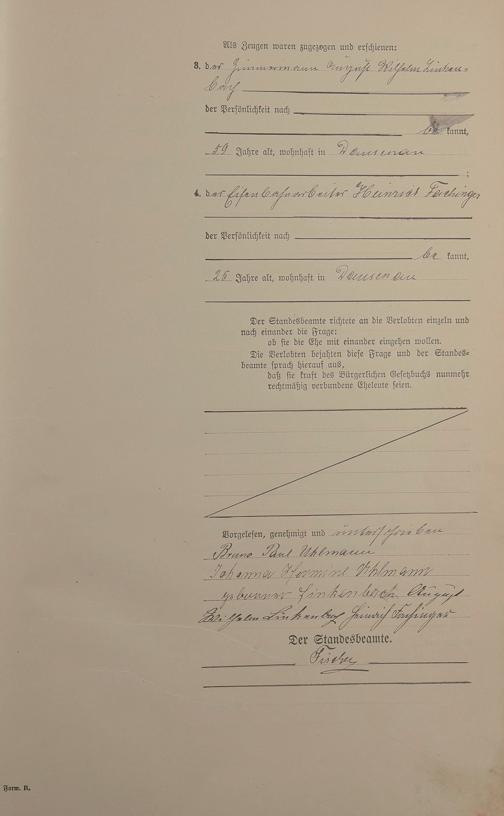 Als Zeugen waren zugezogen und erschienen:
3. der Zimmermann August Wilhelm Linken-
bach
der Persönlichkeit nach
be kannt,
59 Jahre alt, wohnhaft in Dausenau
;
4. der Eisenbahnarbeiter Heinrich Fachinger
der Persönlichkeit nach
be kannt,
26 Jahre alt, wohnhaft in Dausenau
Der Standesbeamte richtete an die Verlobten einzeln und
nach einander die Frage:
ob sie die Ehe mit einander eingehen wollen.
Die Verlobten bejahten diese Frage und der Standes-
beamte sprach hierauf aus,
daß sie kraft des Bürgerlichen Gesetzbuchs nunmehr
rechtmäßig verbundene Eheleute seien.
Vorgelesen, genehmigt und unterschrieben
Bruno Paul Uhlmann
Johanna Hermine Uhlmann
geborener Linkenbach August
Wilhelm Linkenbach Heinrich Fachinger
Der Standesbeamte.
Fischer
Form. B.